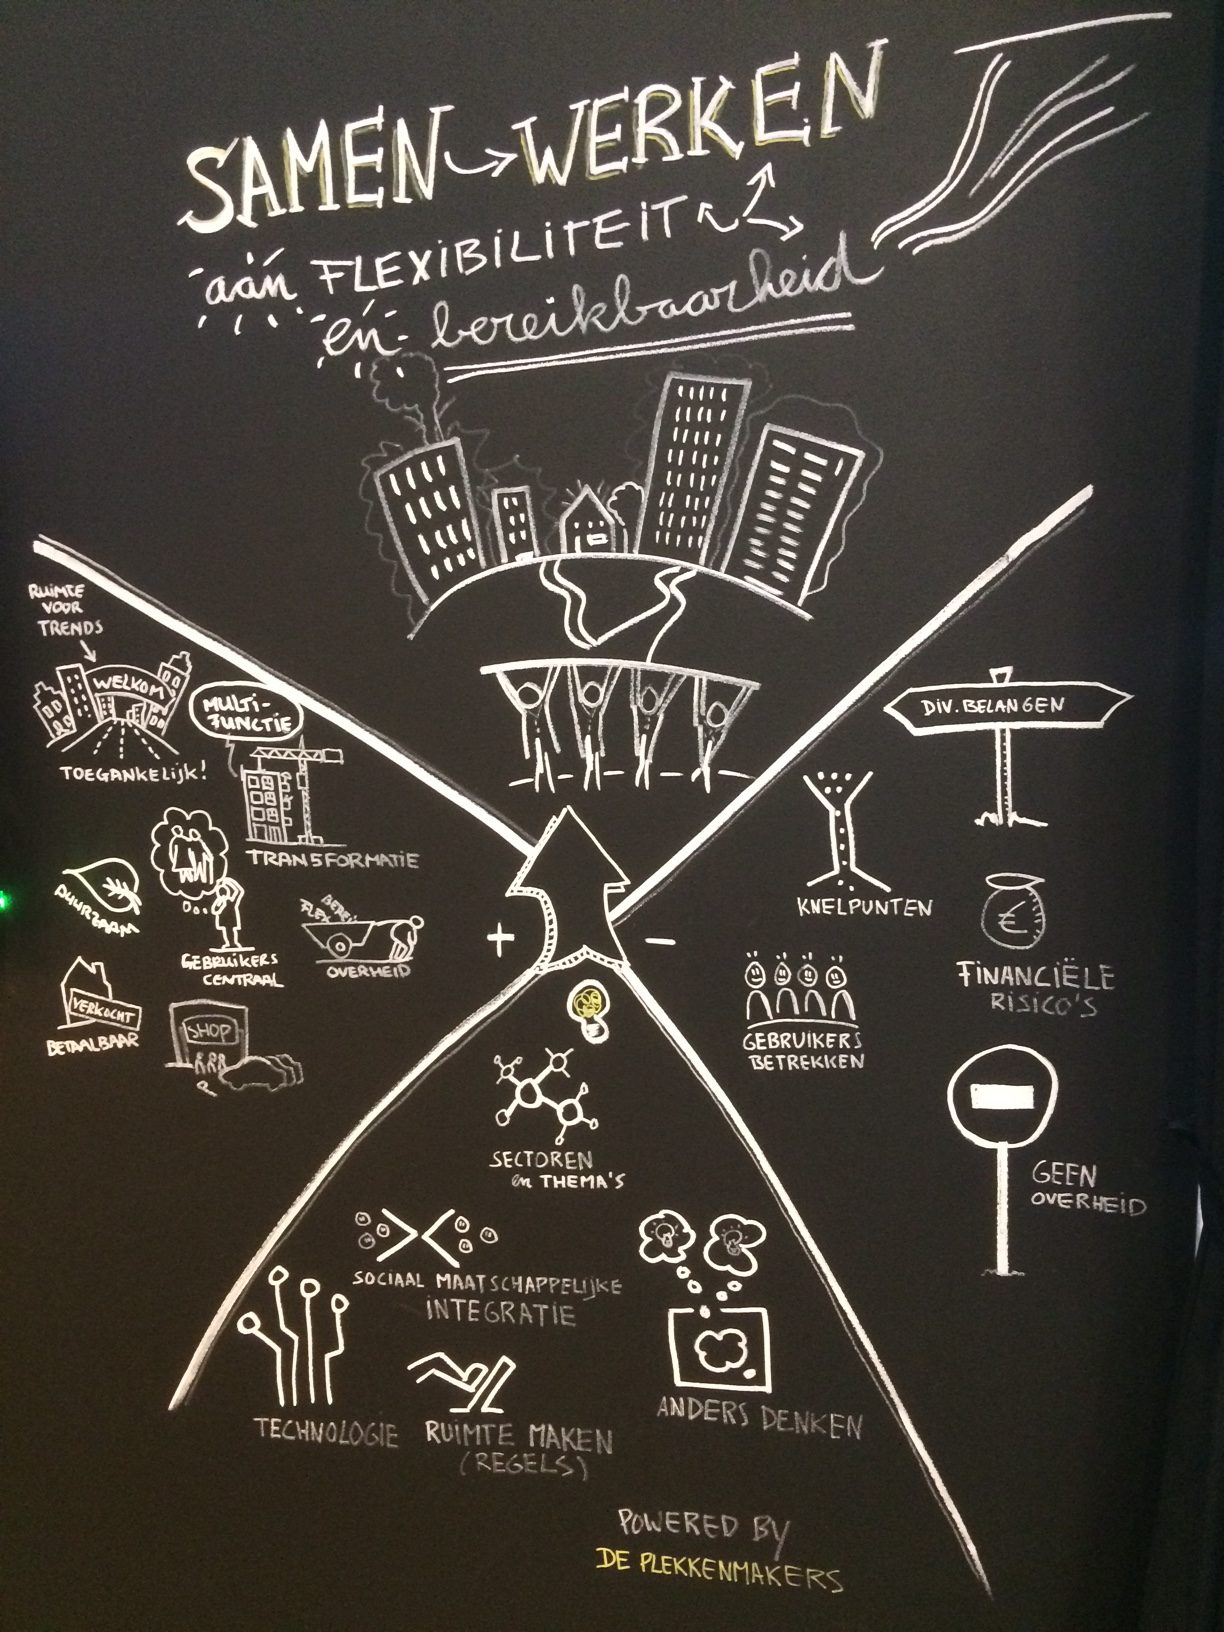 SAMEN WERKEN
aan FLEXIBILITEIT
en bereikbaarheid
RUIMTE
VOOR
TRENDS
WELKOM
TOEGANKELIJK!
MULTI-
FUNCTIE
TRANSFORMATIE
DUURZAAM
GEBRUIKERS
CENTRAAL
FLEX
OVERHEID
VERKOCHT
BETAALBAAR
SHOP
+
-
DIV. BELANGEN
KNELPUNTEN
€
FINANCIËLE
RISICO'S
GEBRUIKERS
BETREKKEN
GEEN
OVERHEID
SECTOREN
en THEMA'S
SOCIAAL MAATSCHAPPELIJKE
INTEGRATIE
TECHNOLOGIE
RUIMTE MAKEN
(REGELS)
ANDERS DENKEN
POWERED BY
DE PLEKKENMAKERS